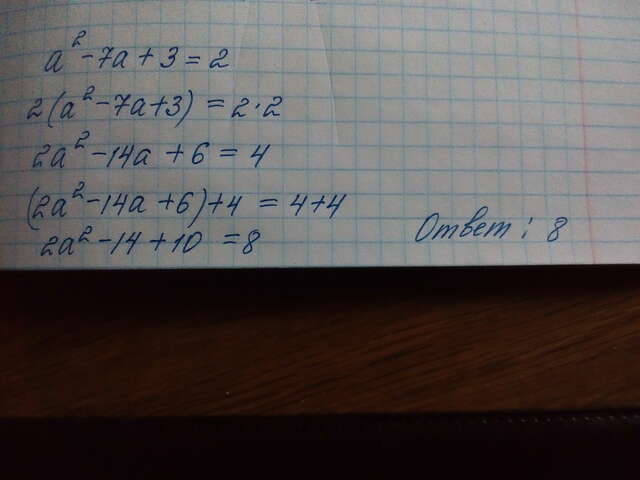 a² - 7a + 3 = 2
2(a² - 7a + 3) = 2 · 2
2a² - 14a + 6 = 4
(2a² - 14a + 6) + 4 = 4 + 4
2a² - 14 + 10 = 8
Ответ: 8